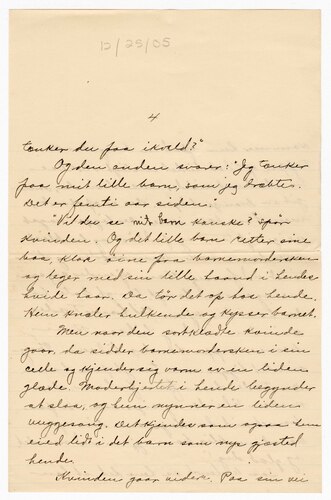 12/29/05
4
tænker du paa ikveld?"
Og den anden svarer: "Jeg tænker
paa mit lille barn, som jeg dræbte.
Det er femti aar siden."
"Vil du se mit barn kanske?" spør
kvinden. Og det lille barn retter sine
blaa, klare øine fra barnemordersken
og leger med sin lille haand i hendes
hvide haar. Da tør det op hos hende.
Hun knæler hulkende og kysser barnet.
Men naar den sortklædte kvinde
gaar, da sidder barnemordersken i sin
celle og kjender sig varm av en liden
glæde. Moderhjertet i hende begynder
at slaa, og hun nynner en liden
vuggesang. Det kjendes som ogsaa hun
eied lidt i det barn som nys gjæsted
hende.
Kvinden gaar videre. Paa sin vei